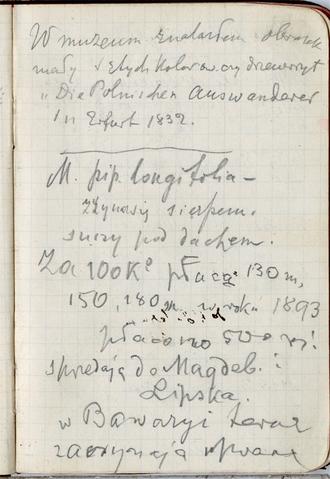 W muzeum znalazłem obrazek
mały z tych kolorow. czy drzeworyt
"Die Polnischen Auswanderer
in Erfurt 1832.
M. pip. longifolia –
zżynają sierpem.
suszy pod dachem.
Za 100 Ko płacą 130 m,
150, 180 m. w roku 1893
płacono 500
sprzedają do Magdeb. i
Lipska.
w Bawaryi teraz
zaczynają